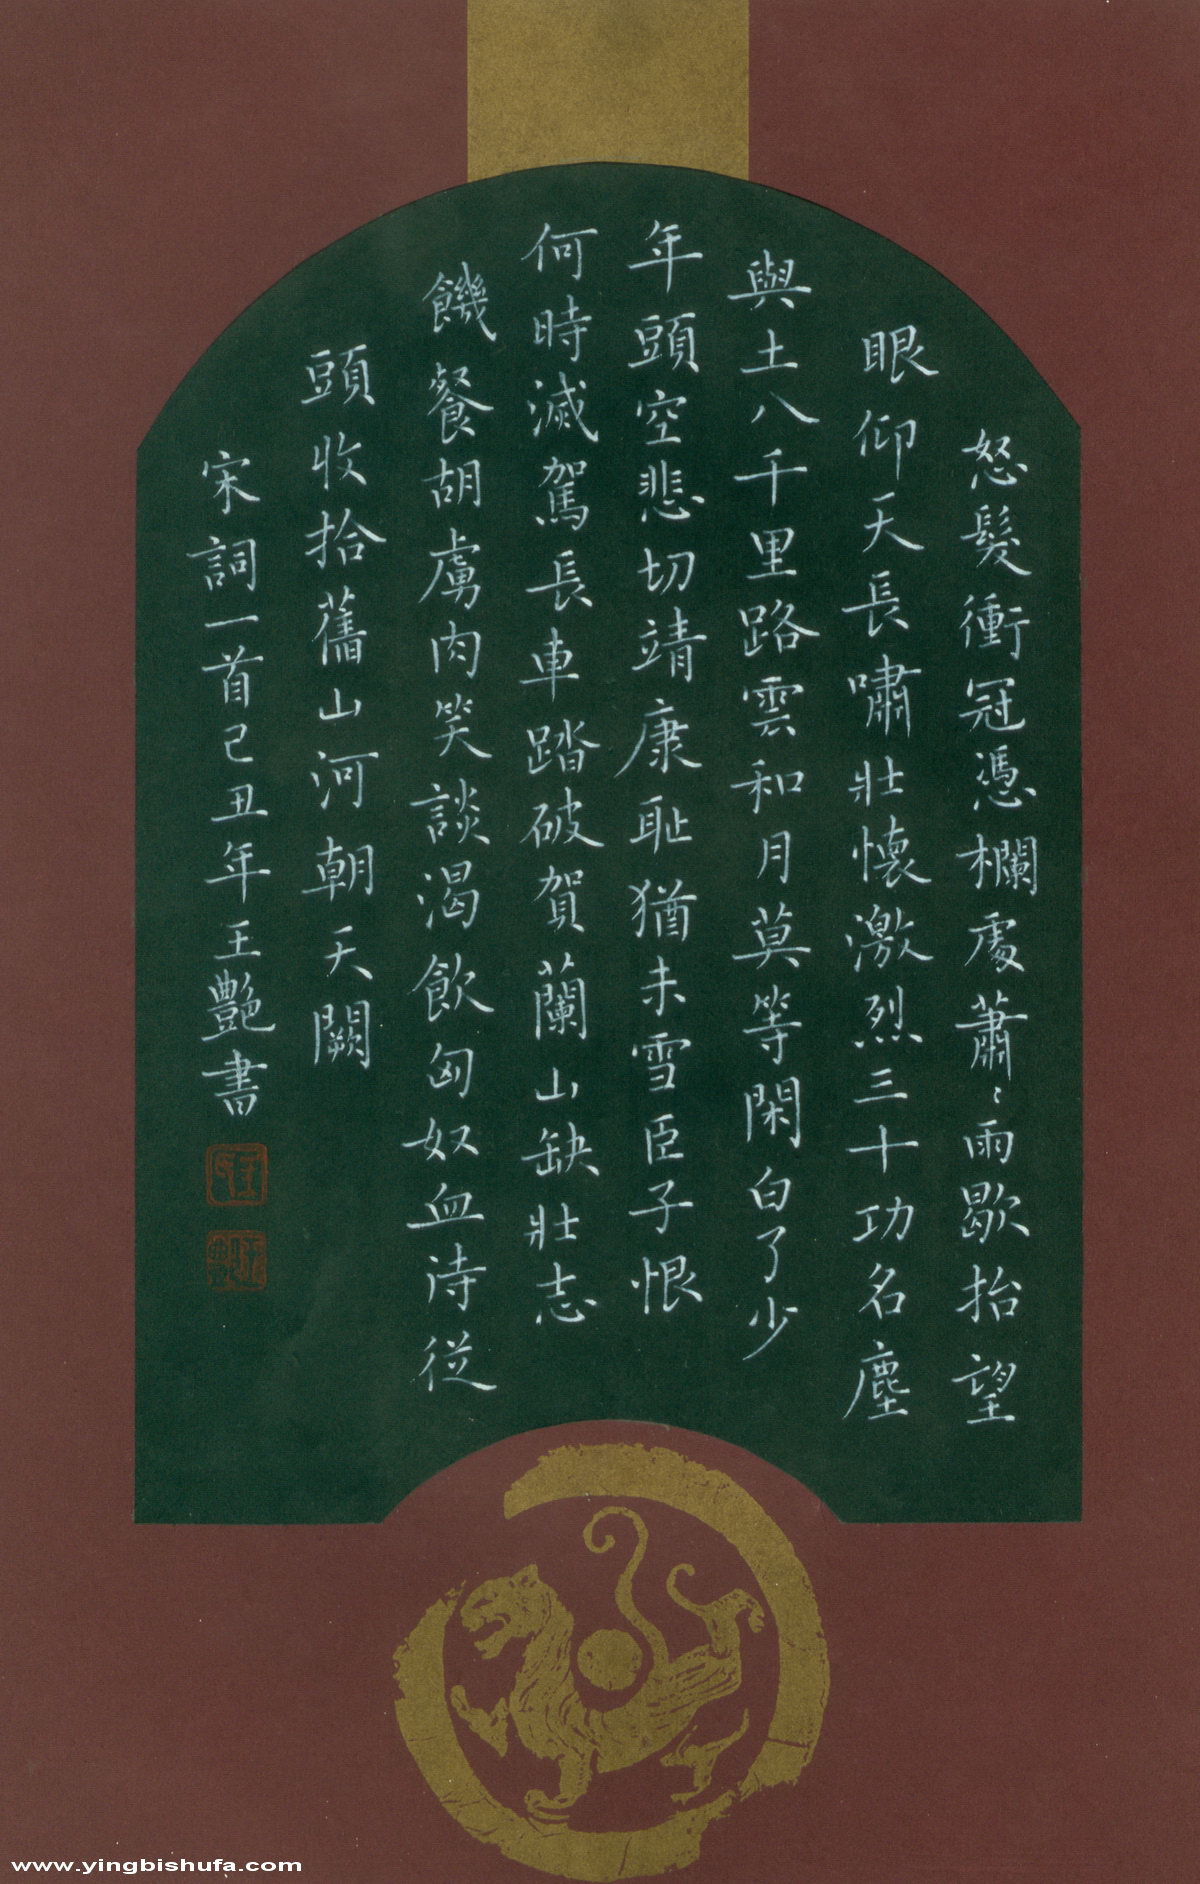 怒髮衝冠憑欄處蕭〻雨歇抬望
眼仰天長嘯壯懷激烈三十功名塵
與土八千里路雲和月莫等閑白了少
年頭空悲切靖康耻猶未雪臣子恨
何時滅駕長車踏破賀蘭山缺壯志
饑餐胡虜肉笑談渴飲匈奴血待從
頭收拾舊山河朝天闕
宋詞一首己丑年王艷書
www.yingbishufa.com